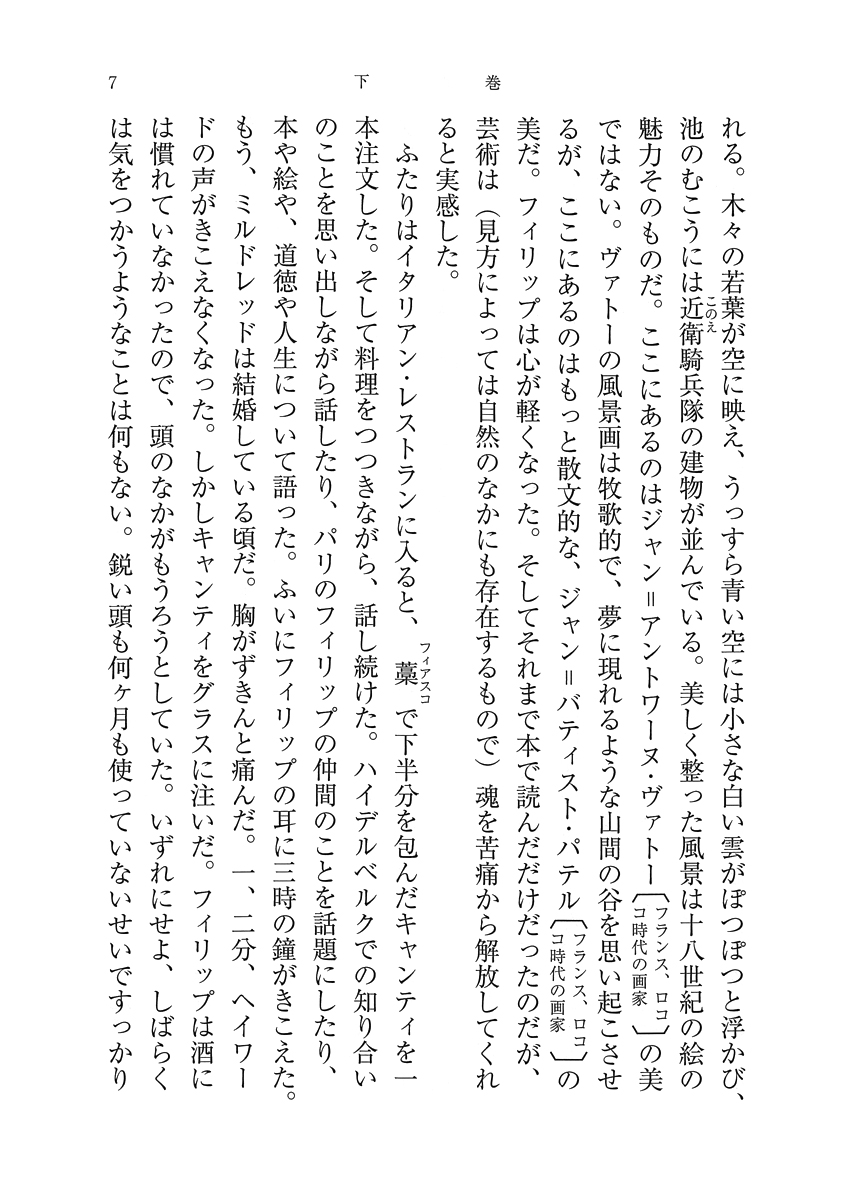 7
下
巻
れる。木々の若葉が空に映え、うっすら青い空には小さな白い雲がぽつぽつと浮かび、
池のむこうには近衛騎兵隊の建物が並んでいる。美しく整った風景は十八世紀の絵の
このえ
魅力そのものだ。ここにあるのはジャン＝アントワーヌ・ヴァトー〔フランス、ロココ時代の画家〕の美
ではない。ヴァトーの風景画は牧歌的で、夢に現れるような山間の谷を思い起こさせ
るが、ここにあるのはもっと散文的な、ジャン＝バティスト・パテル〔フランス、ロココ時代の画家〕の
美だ。フィリップは心が軽くなった。そしてそれまで本で読んだだけだったのだが、
芸術は（見方によっては自然のなかにも存在するもので）魂を苦痛から解放してくれ
ると実感した。
ふたりはイタリアン・レストランに入ると、藁で下半分を包んだキャンティを一
フィアスコ
本注文した。そして料理をつつきながら、話し続けた。ハイデルベルクでの知り合い
のことを思い出しながら話したり、パリのフィリップの仲間のことを話題にしたり、
本や絵や、道徳や人生について語った。ふいにフィリップの耳に三時の鐘がきこえた。
もう、ミルドレッドは結婚している頃だ。胸がずきんと痛んだ。一、二分、ヘイワー
ドの声がきこえなくなった。しかしキャンティをグラスに注いだ。フィリップは酒に
は慣れていなかったので、頭のなかがもうろうとしていた。いずれにせよ、しばらく
は気をつかうようなことは何もない。鋭い頭も何ヶ月も使っていないせいですっかり